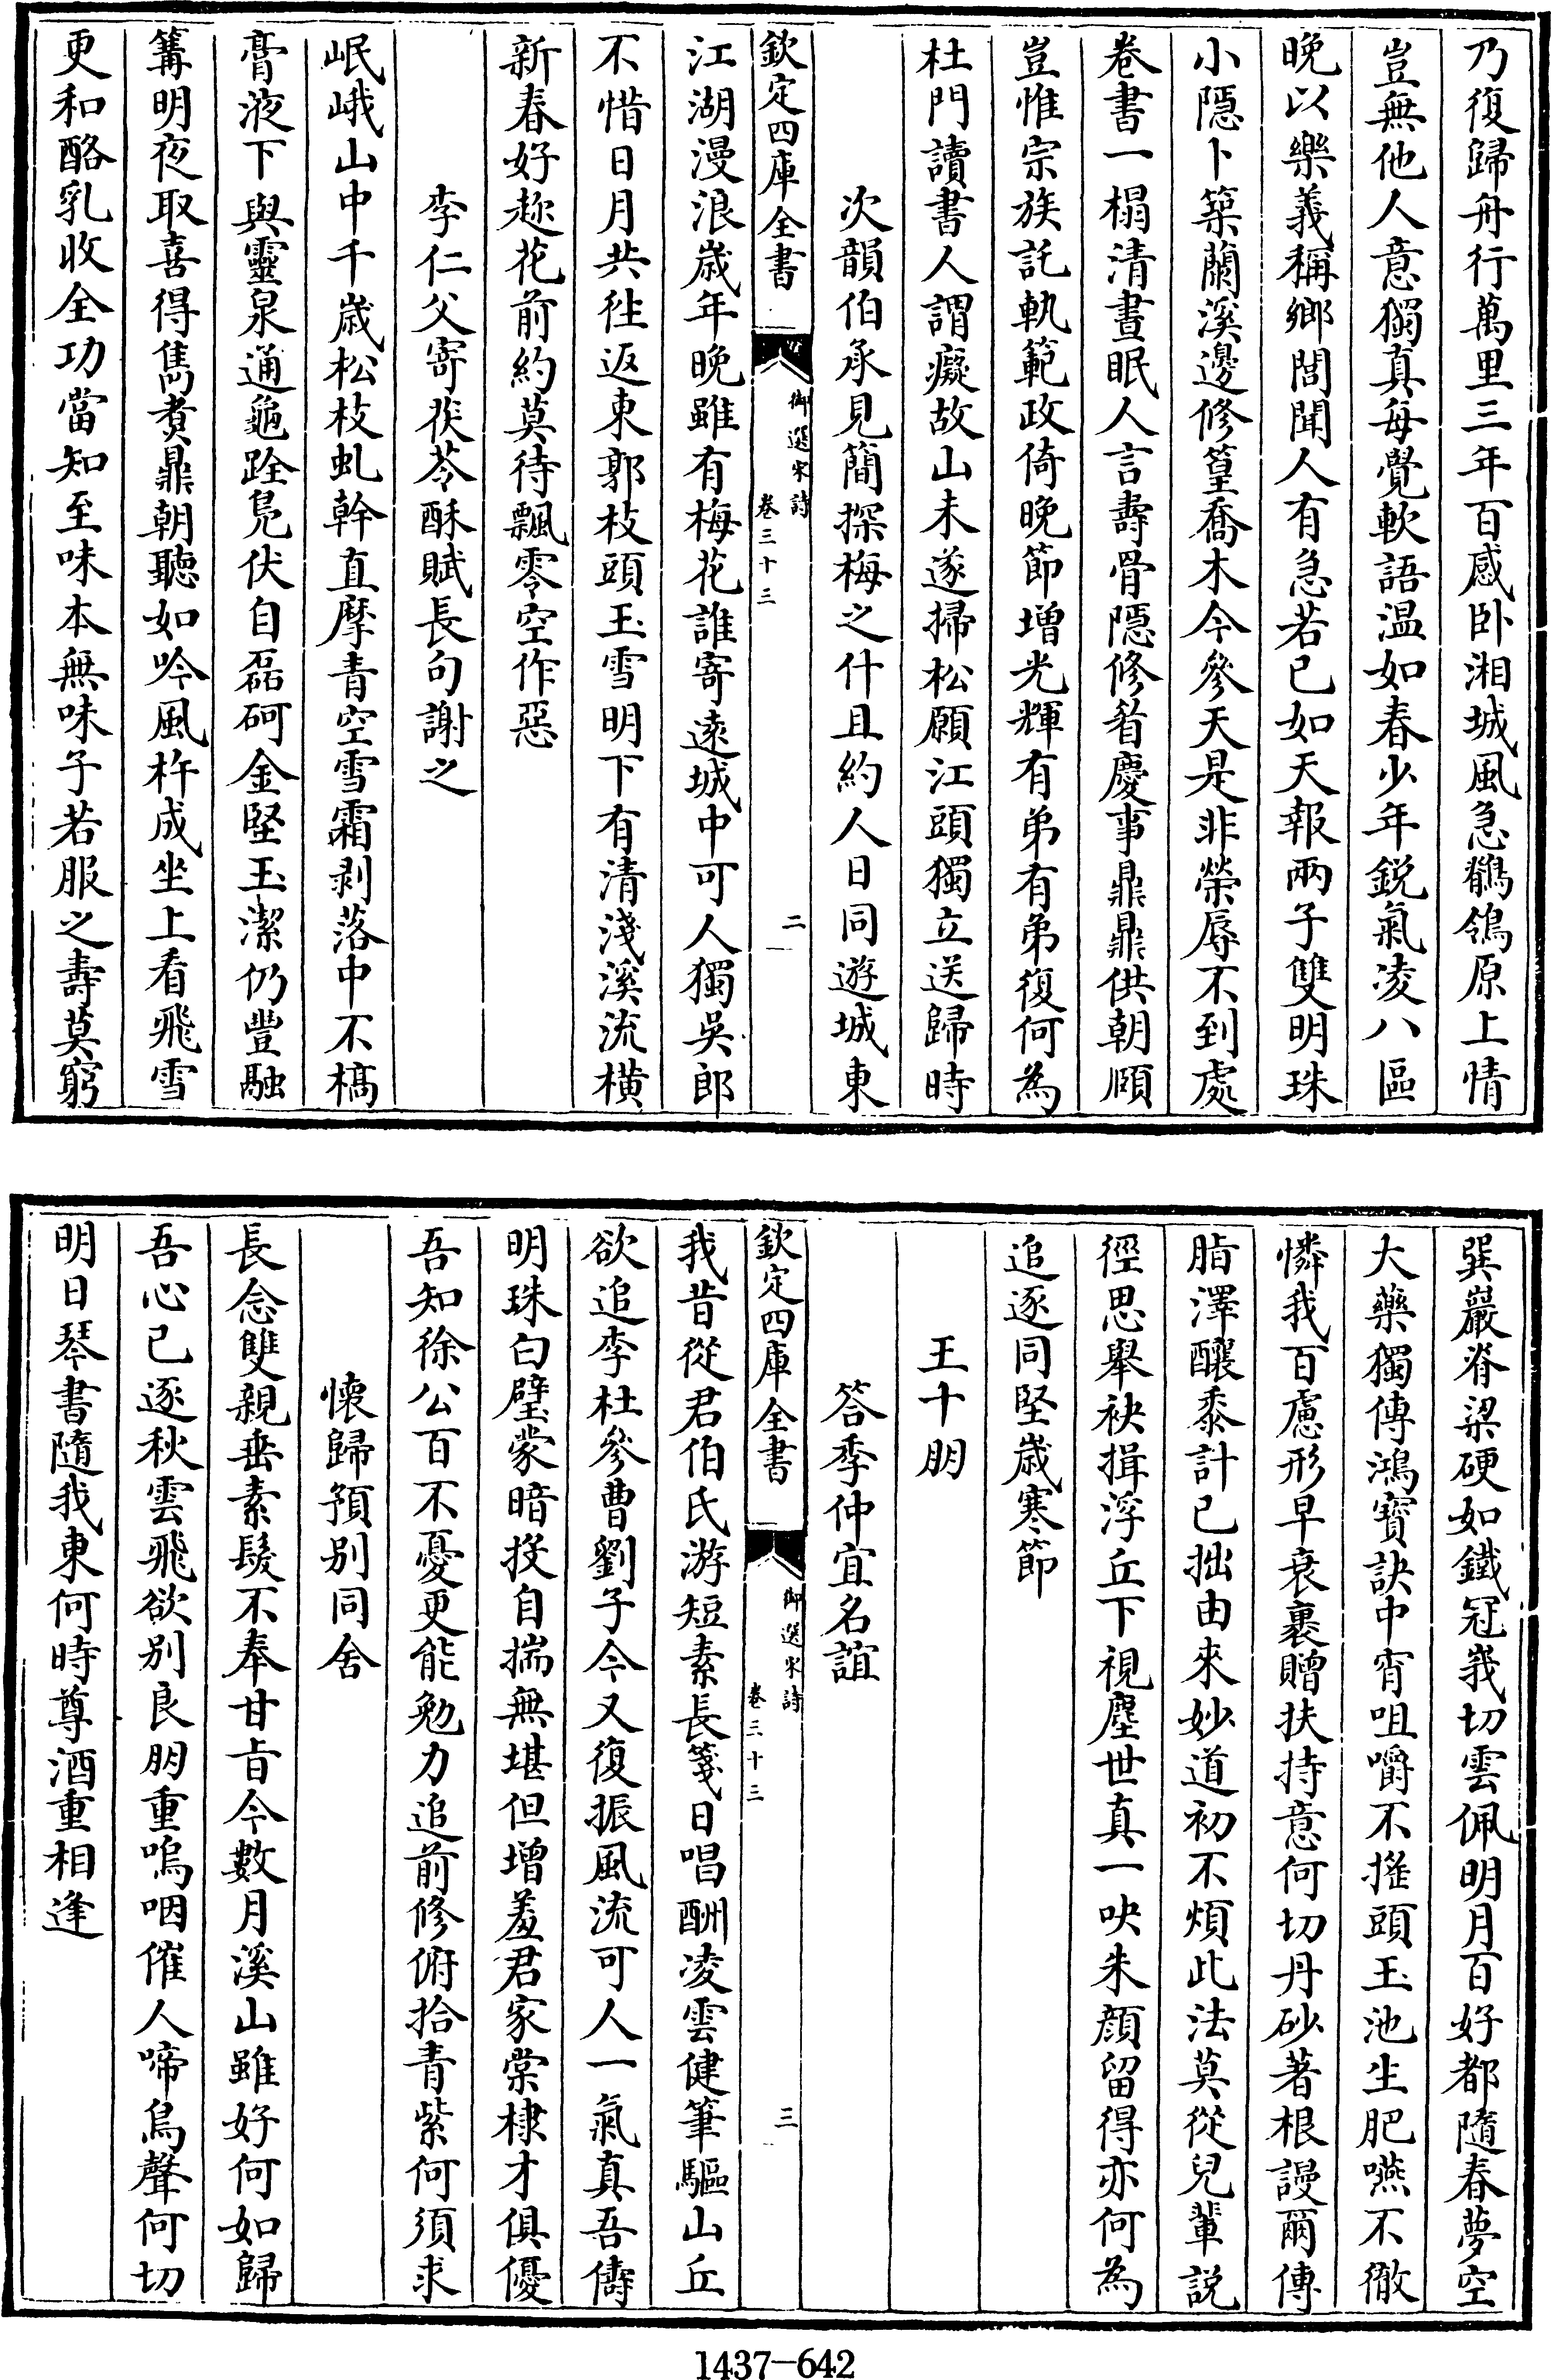 乃復歸舟行萬里三年百感卧湘城風急鶺鴒原上情
豈無他人意獨真每覺軟語温如春少年鋭氣凌八區
晚以樂義稱鄉閭聞人有急若已如天報兩子雙明珠
小隱卜築蘭溪邊修篁喬木今參天是非榮辱不到處
卷書一榻清晝眠人言壽骨隱修眉慶事鼎鼎供朝頤
豈惟宗族託軌範政倚晚節增光輝有弟有弟復何為
杜門讀書人謂癡故山未遂掃松願江頭獨立送歸時
次韻伯承見簡探梅之什且約人日同遊城東
欽定四庫全書
御選宋詩
卷三十三
二
江湖漫浪歲年晚雖有梅花誰寄遠城中可人獨吳郎
不惜日月共往返東郭枝頭玉雪明下有清淺溪流橫
新春好趂花前約莫待飄零空作惡
李仁父寄茯苓酥賦長句謝之
岷峨山中千歲松枝虬幹直摩青空雪霜剥落中不槁
膏液下與靈泉通龜跧鳧伏自磊砢金堅玉潔仍豐融
篝明夜取喜得雋煑鼎朝聽如吟風杵成坐上看飛雪
更和酪乳收全功當知至味本無味子若服之壽莫窮
巽巖脊梁硬如鐵冠峩切雲佩明月百好都隨春夢空
大藥獨傳鴻寶訣中宵咀嚼不摇頭玉池生肥嚥不徹
憐我百慮形早衰裹贈扶持意何切丹砂著根謾爾傳
脂澤釀黍計已拙由來妙道初不煩此法莫從兒輩説
徑思舉袂揖浮丘下視塵世真一吷朱顔留得亦何為
追逐同堅歲寒節
王十朋
答季仲宜名誼
欽定四庫全書
御選宋詩
卷三十三
三
我昔從君伯氏游短素長箋日唱酬凌雲健筆驅山丘
欲追李杜參曹劉子今又復振風流可人一氣真吾儔
明珠白璧蒙暗投自揣無堪但增羞君家棠棣才俱優
吾知徐公百不憂更能勉力追前修俯拾青紫何須求
懷歸預别同舍
長念雙親垂素髮不奉甘旨今數月溪山雖好何如歸
吾心已逐秋雲飛欲别良朋重嗚咽催人啼鳥聲何切
明日琴書隨我東何時尊酒重相逢
1437—642